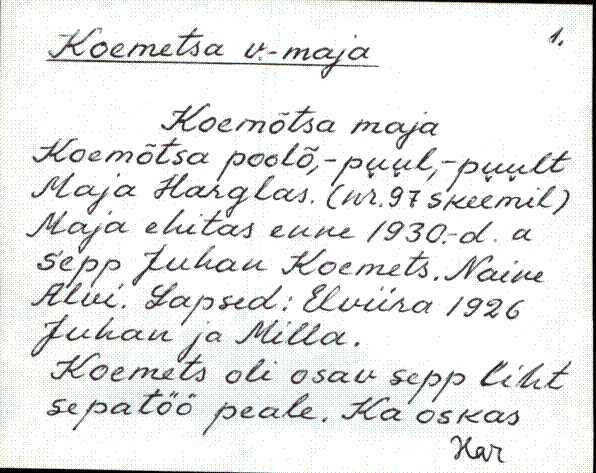 1.
Koemetsa v.-maja
Koemõtsa maja
Koemõtsa poolõ,-puul,-puult
Maja Harglas. (nr. 97 skeemil)
Maja ehitas enne 1930.-d. a
sepp Juhan Koemets. Naine
Alvi. Lapsed: Elviira 1926
Juhan ja Milla.
Koemets oli osav sepp liht
sepatöö peale. Ka oskas
Har